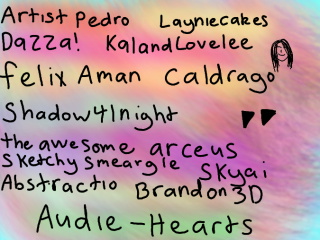 Artist Pedro Layniecakes
Dazza! KalandLovelee
felix Aman Caldrago
Shadow41night
the awesome arceus
Sketchy Smeargle Skyai
Abstractio Brandon3D
Audie-Hearts